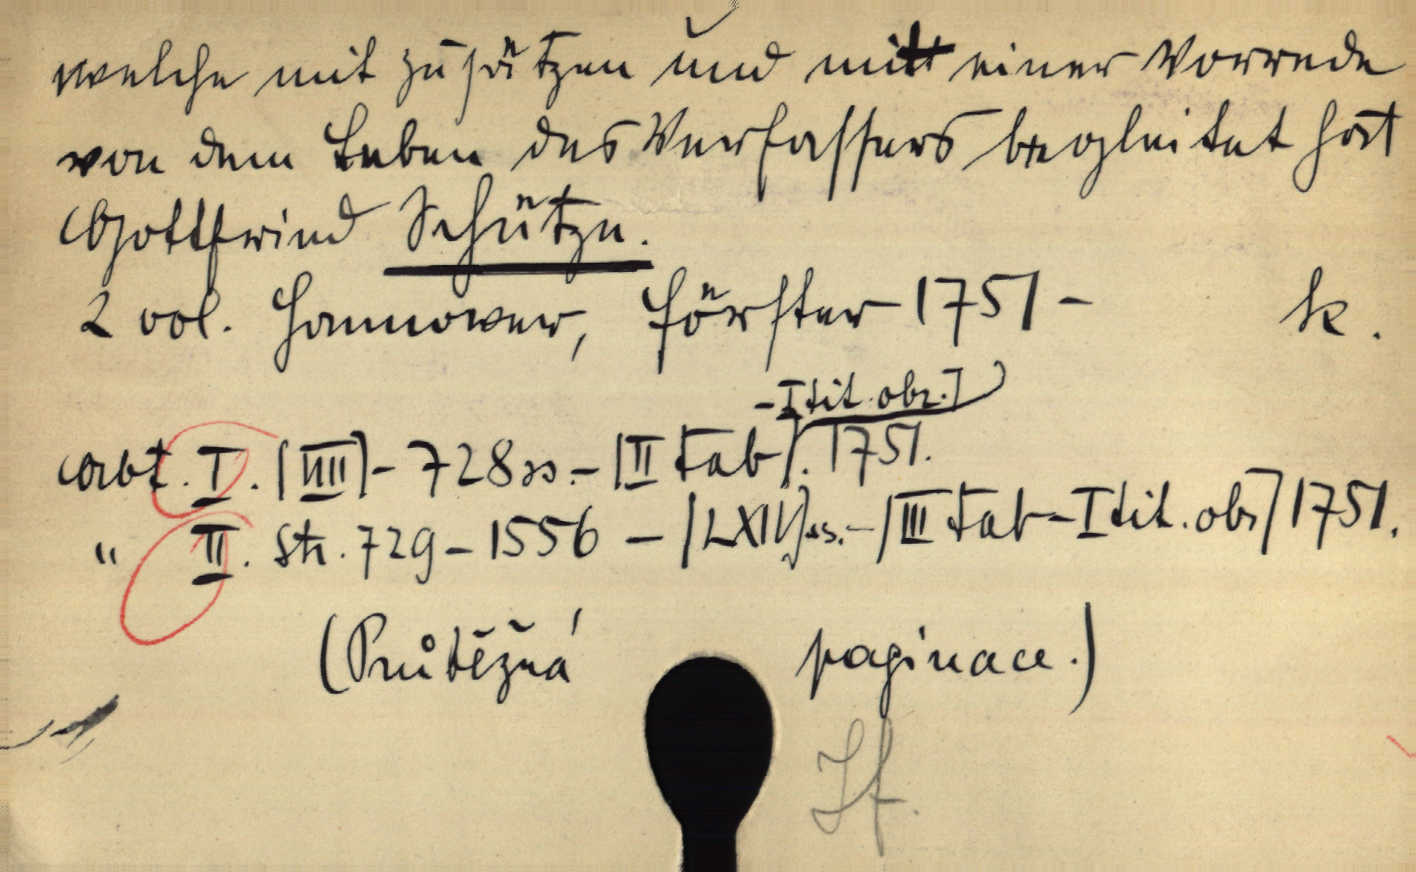 welche mit Zusätzen und mit einer Vorrede
von dem Leben des Verfassers begleitet hat
Gottfried Schütze.
2 vol. Hannover, Förster 1751 - k.
- I tit. obr.]
Abt. I. [VIII] - 728 ss. - [II tab]. 1751.
" II. Str. 729 - 1556 - [LXIV] ss. - [III tab - I tit. obr.] 1751.
(Průtěžná paginace.)